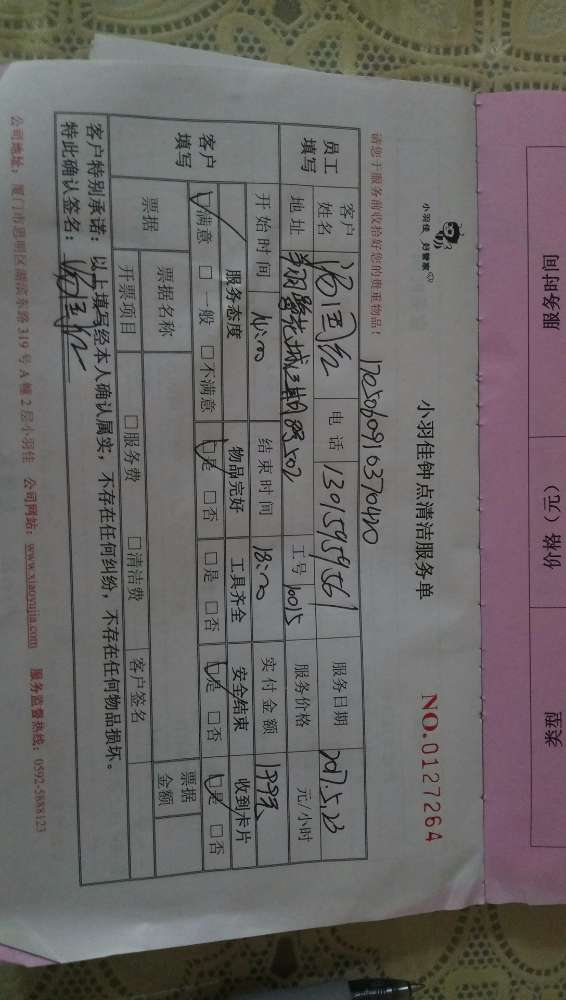 小羽佳 归管家
小羽佳钟点清洁服务单
NO.0127264
请您于服务前收拾好您的贵重物品！
员工填写
客户姓名
电话
服务日期 2017.5.23
地址
工号 10015
服务价格 元/小时
开始时间 14:00
结束时间 18:00
实付金额
客户填写
服务态度 物品完好 工具齐全 安全结束 收到卡片
☑满意 □一般 □不满意 ☑是 □否 □是 □否 ☑是 □否 ☑是 □否
票据
票据名称
票据金额
开票项目 □服务费 □清洁费 客户签名
客户特别承诺：以上填写经本人确认属实，不存在任何纠纷，不存在任何物品损坏。
特此确认签名：
公司地址：厦门市思明区湖滨东路319号A幢2层小羽佳 公司网站：www.xiaoyujia.com 服务监督热线：0592-5888123
服务时间 价格（元） 类型